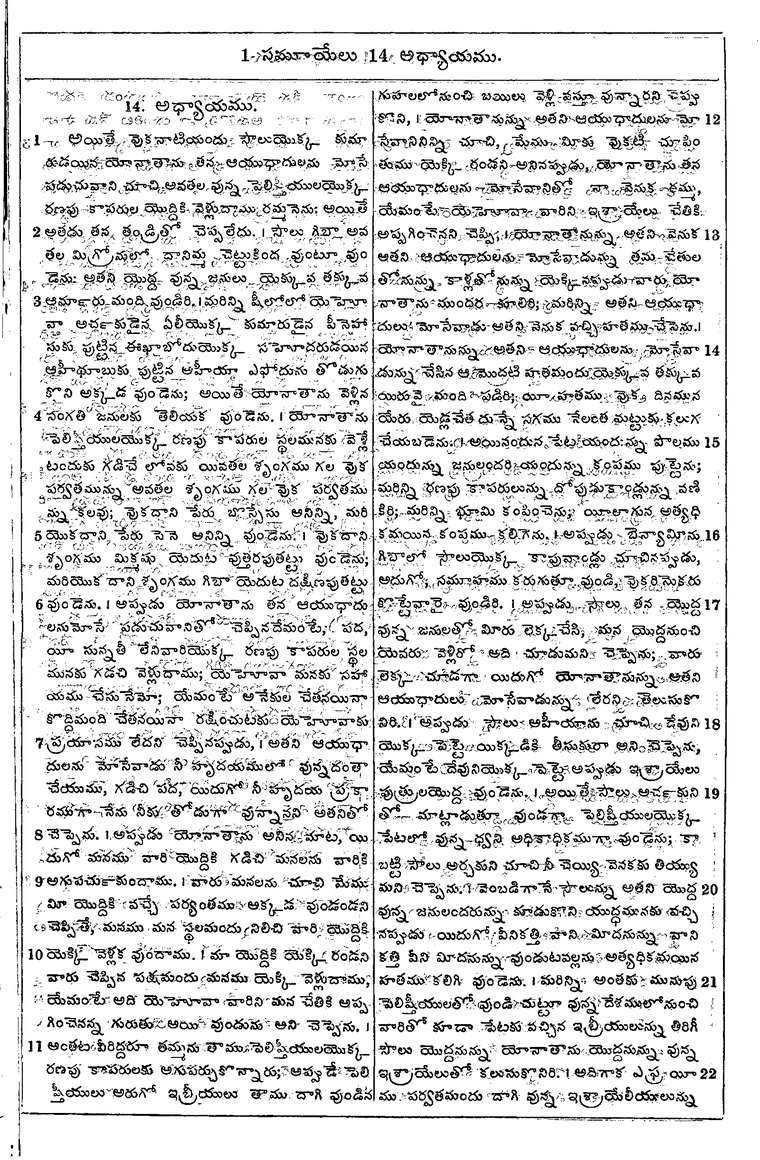 1 సమూయేలు 14 అధ్యాయము.
14. అధ్యాయము.
1 అయితే వొకనాటియందు సౌలుయొక్క కుమా
రుడయిన యోనాతాను తన ఆయుధాదులను మోసే
పడుచువాని చూచి అవతల వున్న పెలిస్తీయులయొక్క
రణపు కాపరుల యొద్దికి వెళ్లుదాము రమ్మనెను: అయితే
2 అతడు తన తండ్రితో చెప్పలేదు. । సౌలు గిబా అవ
తల మిగ్రోనులో దానిమ్మ చెట్టుకింద వుంటూ వుం
డెను: అతని యొద్ద వున్న జనులు యెక్కువ తక్కువ
3 ఆమారు మంది వుండిరి. । మరిన్ని షీలోలో యెహో
వా అర్చకుడైన ఏలీయొక్క కుమారుడైన పీనెహా
సుకు పుట్టిన ఈఖాబోదుయొక్క సహోదరుడయిన
అహీథూబుకు పుట్టిన అహీయా ఎఫోదును తొడుగు
కొని అక్కడ వుండెను; అయితే యోనాతాను వెళ్లిన
4 సంగతి జనులకు తెలియక వుండెను. । యోనాతాను
పెలిస్తీయులయొక్క రణపు కాపరుల స్థలమునకు వెళ్లే
టందుకు గడిచే లోవకు యివతల శృంగము గల వొక
పర్వతమున్ను అవతల శృంగము గల వొక పర్వతము
న్ను కలవు; వొకదాని పేరు బొస్సేసు అనిన్ని, మరి
5 యొకదాని పేరు సెనె అనిన్ని వుండెను. । వొకదాని
శృంగము మిక్మషు యెదుట వుత్తరపుతట్టు వుండెను;
మరియొక దాని శృంగము గిబా యెదుట దక్షిణపుతట్టు
6 వుండెను. । అప్పుడు యోనాతాను తన ఆయుధాదు
లనుమోసే పడుచువానితో చెప్పినదేమంటే; పద,
యీ సున్నతీ లేనివారియొక్క రణపు కాపరుల స్థల
మునకు గడచి వెళ్లుదాము; యెహోవా మనకు సహా
యము చేసునేమో; యేమంటే అనేకుల చేతనయినా
కొద్దిమంది చేతనయినా రక్షించుటకు యెహోవాకు
7 ప్రయాసము లేదని చెప్పినప్పుడు, । అతని ఆయుధా
దులను మోసేవాడు నీ హృదయములో వున్నదంతా
చేయుము, గడిచి పద, యిదుగో నీ హృదయ ప్రకా
రముగా నేను నీకు తోడుగా వున్నానని అతనితో
8 చెప్పెను. । అప్పుడు యోనాతాను అనిన మాట, యి
దుగో మనము వారి యొద్దికి గడిచి మనలను వారికి
9 అగుపచుకుందాము. । వారు మనలను చూచి మేము
మీ యొద్దికి వచ్చే పర్యంతము అక్కడ వుండండని
చెప్పితే, మనము మన స్థలమందు నిలిచి వారి యొద్దికి
10 యెక్కి వెళ్లక వుందాము. । మా యొద్దికి యెక్కి రండని
వారు చెప్పిన పక్షమందు మనము యెక్కి వెళ్లుదాము;
యేమంటే అది యెహోవా వారిని మన చేతికి అప్ప
గించెనన్న గురుతు అయి వుండును అని చెప్పెను. ।
11 అంతట వీరిద్దరూ తమ్మును తాము పెలిస్తీయులయొక్క
రణపు కాపరులకు అగుపర్చుకొన్నారు; అప్పుడే పెలి
స్తీయులు అరుగో ఇబ్రీయులు తాము దాగి వుండిన
గుహలలోనుంచి బయిలు వెళ్లి వస్తూ వున్నారని చెప్పు
కొని, । యోనాతానున్ను అతని ఆయుధాదులను మో 12
సేవానినిన్ని చూచి, మేము మీకు వొకటి చూపిం
తుము యెక్కి రండని అనినప్పుడు, యోనాతాను తన
ఆయుధాదులను మోసేవానితో నా వెనుక రమ్ము,
యేమంటే యెహోవా వారిని ఇశ్రాయేలు చేతికి
అప్పగించెనని చెప్పి; । యోనాతానున్ను అతని వెనుక 13
అతని ఆయుధాదులను మోసేవాడున్ను తమ చేతుల
తోనున్ను కాళ్లతోనున్ను యెక్కినప్పుడు వారు యో
నాతాను ముందర కూలిరి; మరిన్ని అతని ఆయుధా
దులు మోసేవాడు అతని వెనుక వచ్చి హతము చేసెను. ।
యోనాతానున్ను అతని ఆయుధాదులను మోసేవా 14
డున్ను చేసిన ఆ మొదటి హతమందు యెక్కువ తక్కువ
యిరువై మంది పడిరి; యీ హతము వొక దినమున
యేరు యెడ్లచేత దున్నే సగము నేలంత మట్టుకు కలుగ
చేయబడెను. । అయినందున పేటయందున్ను పొలము 15
యందున్ను జనులందరియందున్ను కంపము పుట్టెను;
మరిన్ని రణపు కాపరులున్ను దోపుడుకాండ్లున్ను వణి
కిరి; మరిన్ని భూమి కంపించెను; యీలాగున అత్యధి
కమయిన కంపము కలిగెను. । అప్పుడు బెన్యామీను 16
గిబాలో సౌలుయొక్క కాపువాండ్లు చూచినప్పుడు,
అదుగో, సమూహము కరుగుతూ వుండి, వొకరినొకరు
కొట్టేవారై వుండిరి. । అప్పుడు సౌలు తన యొద్ద 17
వున్న జనులతో మీరు లెక్క చేసి, మన యొద్దనుంచి
యెవరు వెళ్లిరో అది చూడుమని చెప్పెను; వారు
లెక్క చూడగా యిదుగో యోనాతానున్ను అతని
ఆయుధాదులు మోసేవాడున్ను లేరని తెలుసుకొ
నిరి. । అప్పుడు సౌలు అహీయాను చూచి దేవుని 18
యొక్క పెట్టె యిక్కడికి తీసుకురా అని చెప్పెను,
యేమంటే దేవునియొక్క పెట్టె అప్పుడు ఇశ్రాయేలు
పుత్రులయొద్ద వుండెను. । అయితే సౌలు అర్చకుని 19
తో మాట్లాడుతూ వుండగా పెలిస్తీయులయొక్క
పేటలో వున్న ధ్వని అధికాధికముగా వుండెను; కా
బట్టి సౌలు అర్చకుని చూచి నీ చెయ్యి వెనకకు తియ్యు
మని చెప్పెను. । వెంబడిగానే సౌలున్ను అతని యొద్ద 20
వున్న జనులందరున్ను కూడుకొని యుద్ధమునకు వచ్చి
నప్పుడు యిదుగో వీనికత్తి వాని మీదనున్ను వాని
కత్తి వీని మీదనున్ను వుండుటవల్లను అత్యధికమయిన
హతము కలిగి వుండెను. । మరిన్ని అంతకు మునుపు 21
పెలిస్తీయులతో వుండి చుట్టూ వున్న దేశములోనుంచి
వారితో కూడా పేటకు వచ్చిన ఇబ్రీయులున్ను తిరిగీ
సౌలు యొద్దనున్ను యోనాతాను యొద్దనున్ను వున్న
ఇశ్రాయేలుతో కలుసుకొనిరి. । అదిగాక ఎఫ్రాయీ 22
ము పర్వతమందు దాగి వున్న ఇశ్రాయేలీయులున్ను